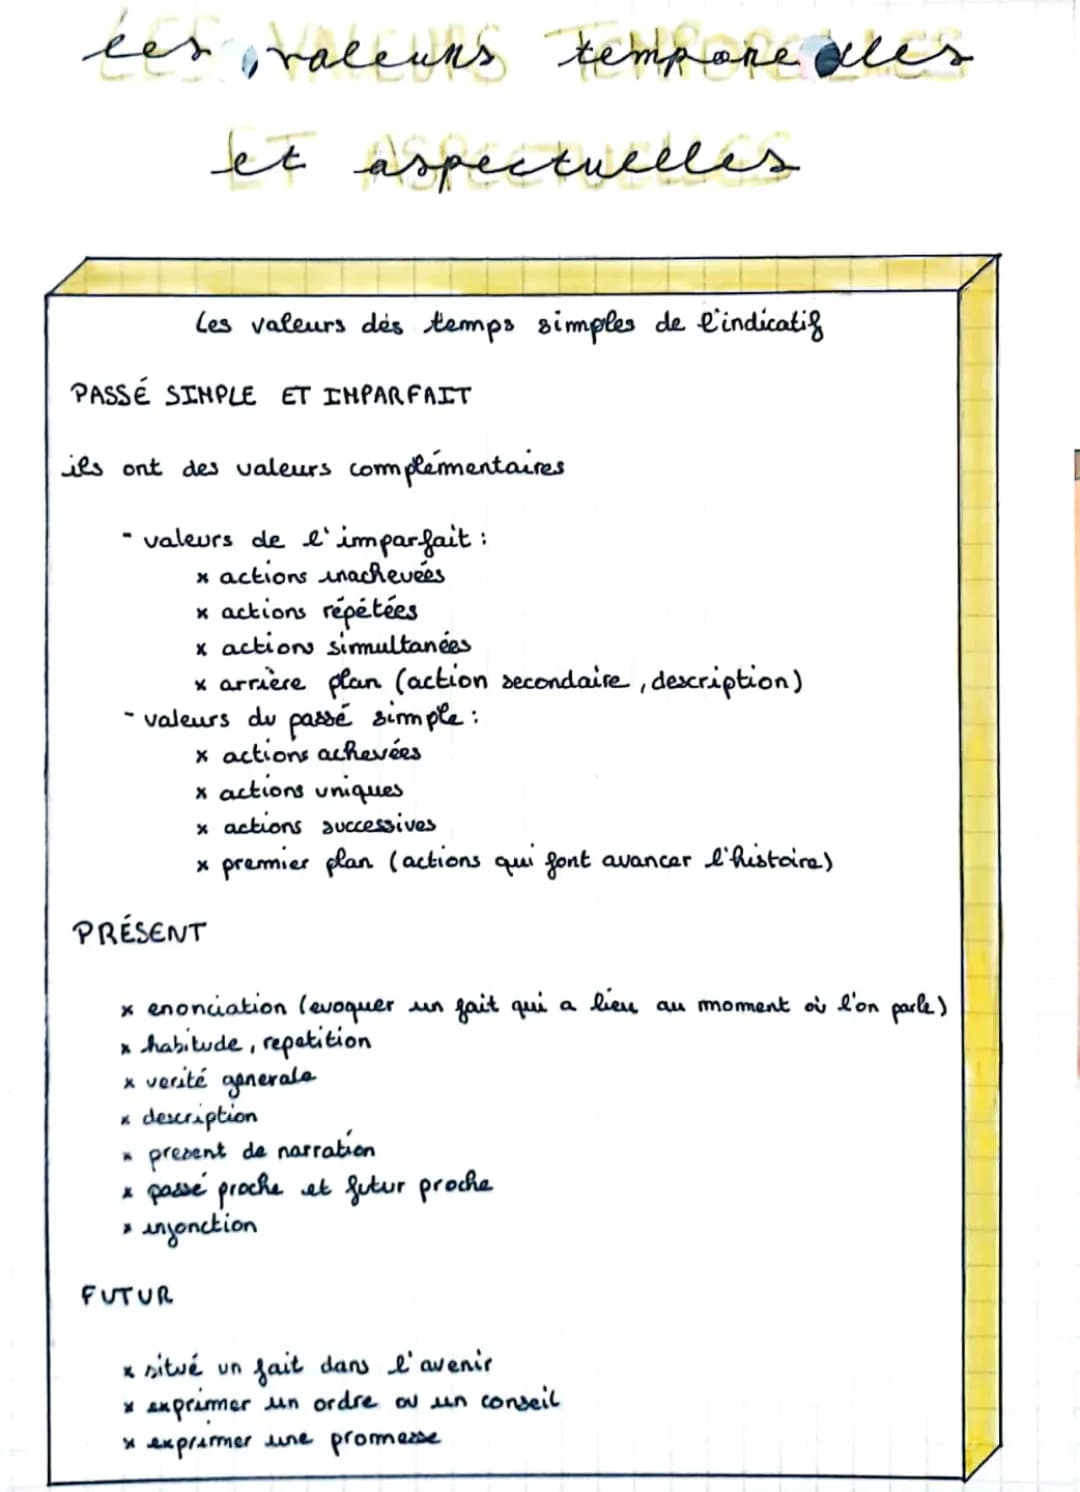 les valeurs temporelles
et aspectuelles
Les valeurs des temps simples de l'indicatif
PASSÉ SIMPLE ET IMPARFAIT
ils ont des valeurs complémentaires
- valeurs de l'imparfait :
x actions inachevées
x actions répétées
x actions simultanées
x arrière plan (action secondaire, description)
- valeurs du passé simple :
x actions achevées
x actions uniques
x actions successives
x premier plan (actions qui font avancer l'histoire)
PRÉSENT
x enonciation (evoquer un fait qui a lieu au moment où l'on parle)
x habitude, repetition
x verité generale
x description
x present de narration
x passé proche et futur proche
x injonction
FUTUR
x situé un fait dans l'avenir
x exprimer un ordre ou un conseil
x exprimer une promesse